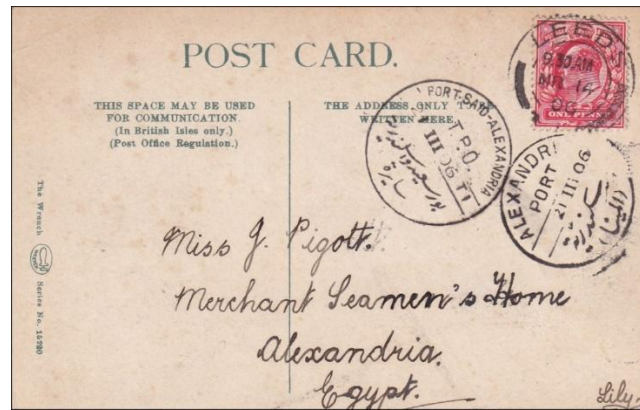 POST CARD.
THIS SPACE MAY BE USED
FOR COMMUNICATION.
(In British Isles only.)
(Post Office Regulation.)
THE ADDRESS ONLY TO BE
WRITTEN HERE.
LEEDS
9.30AM
MR 14
06
ONE PENNY
PORT-SAID-ALEXANDRIA
T.P.O.
III 06 T1
بور سعيد
ALEXANDRI
PORT
21 III 06
Miss J. Pigott.
Merchant Seamen's Home
Alexandria.
Egypt.
Lily
The Wrench
Series No.